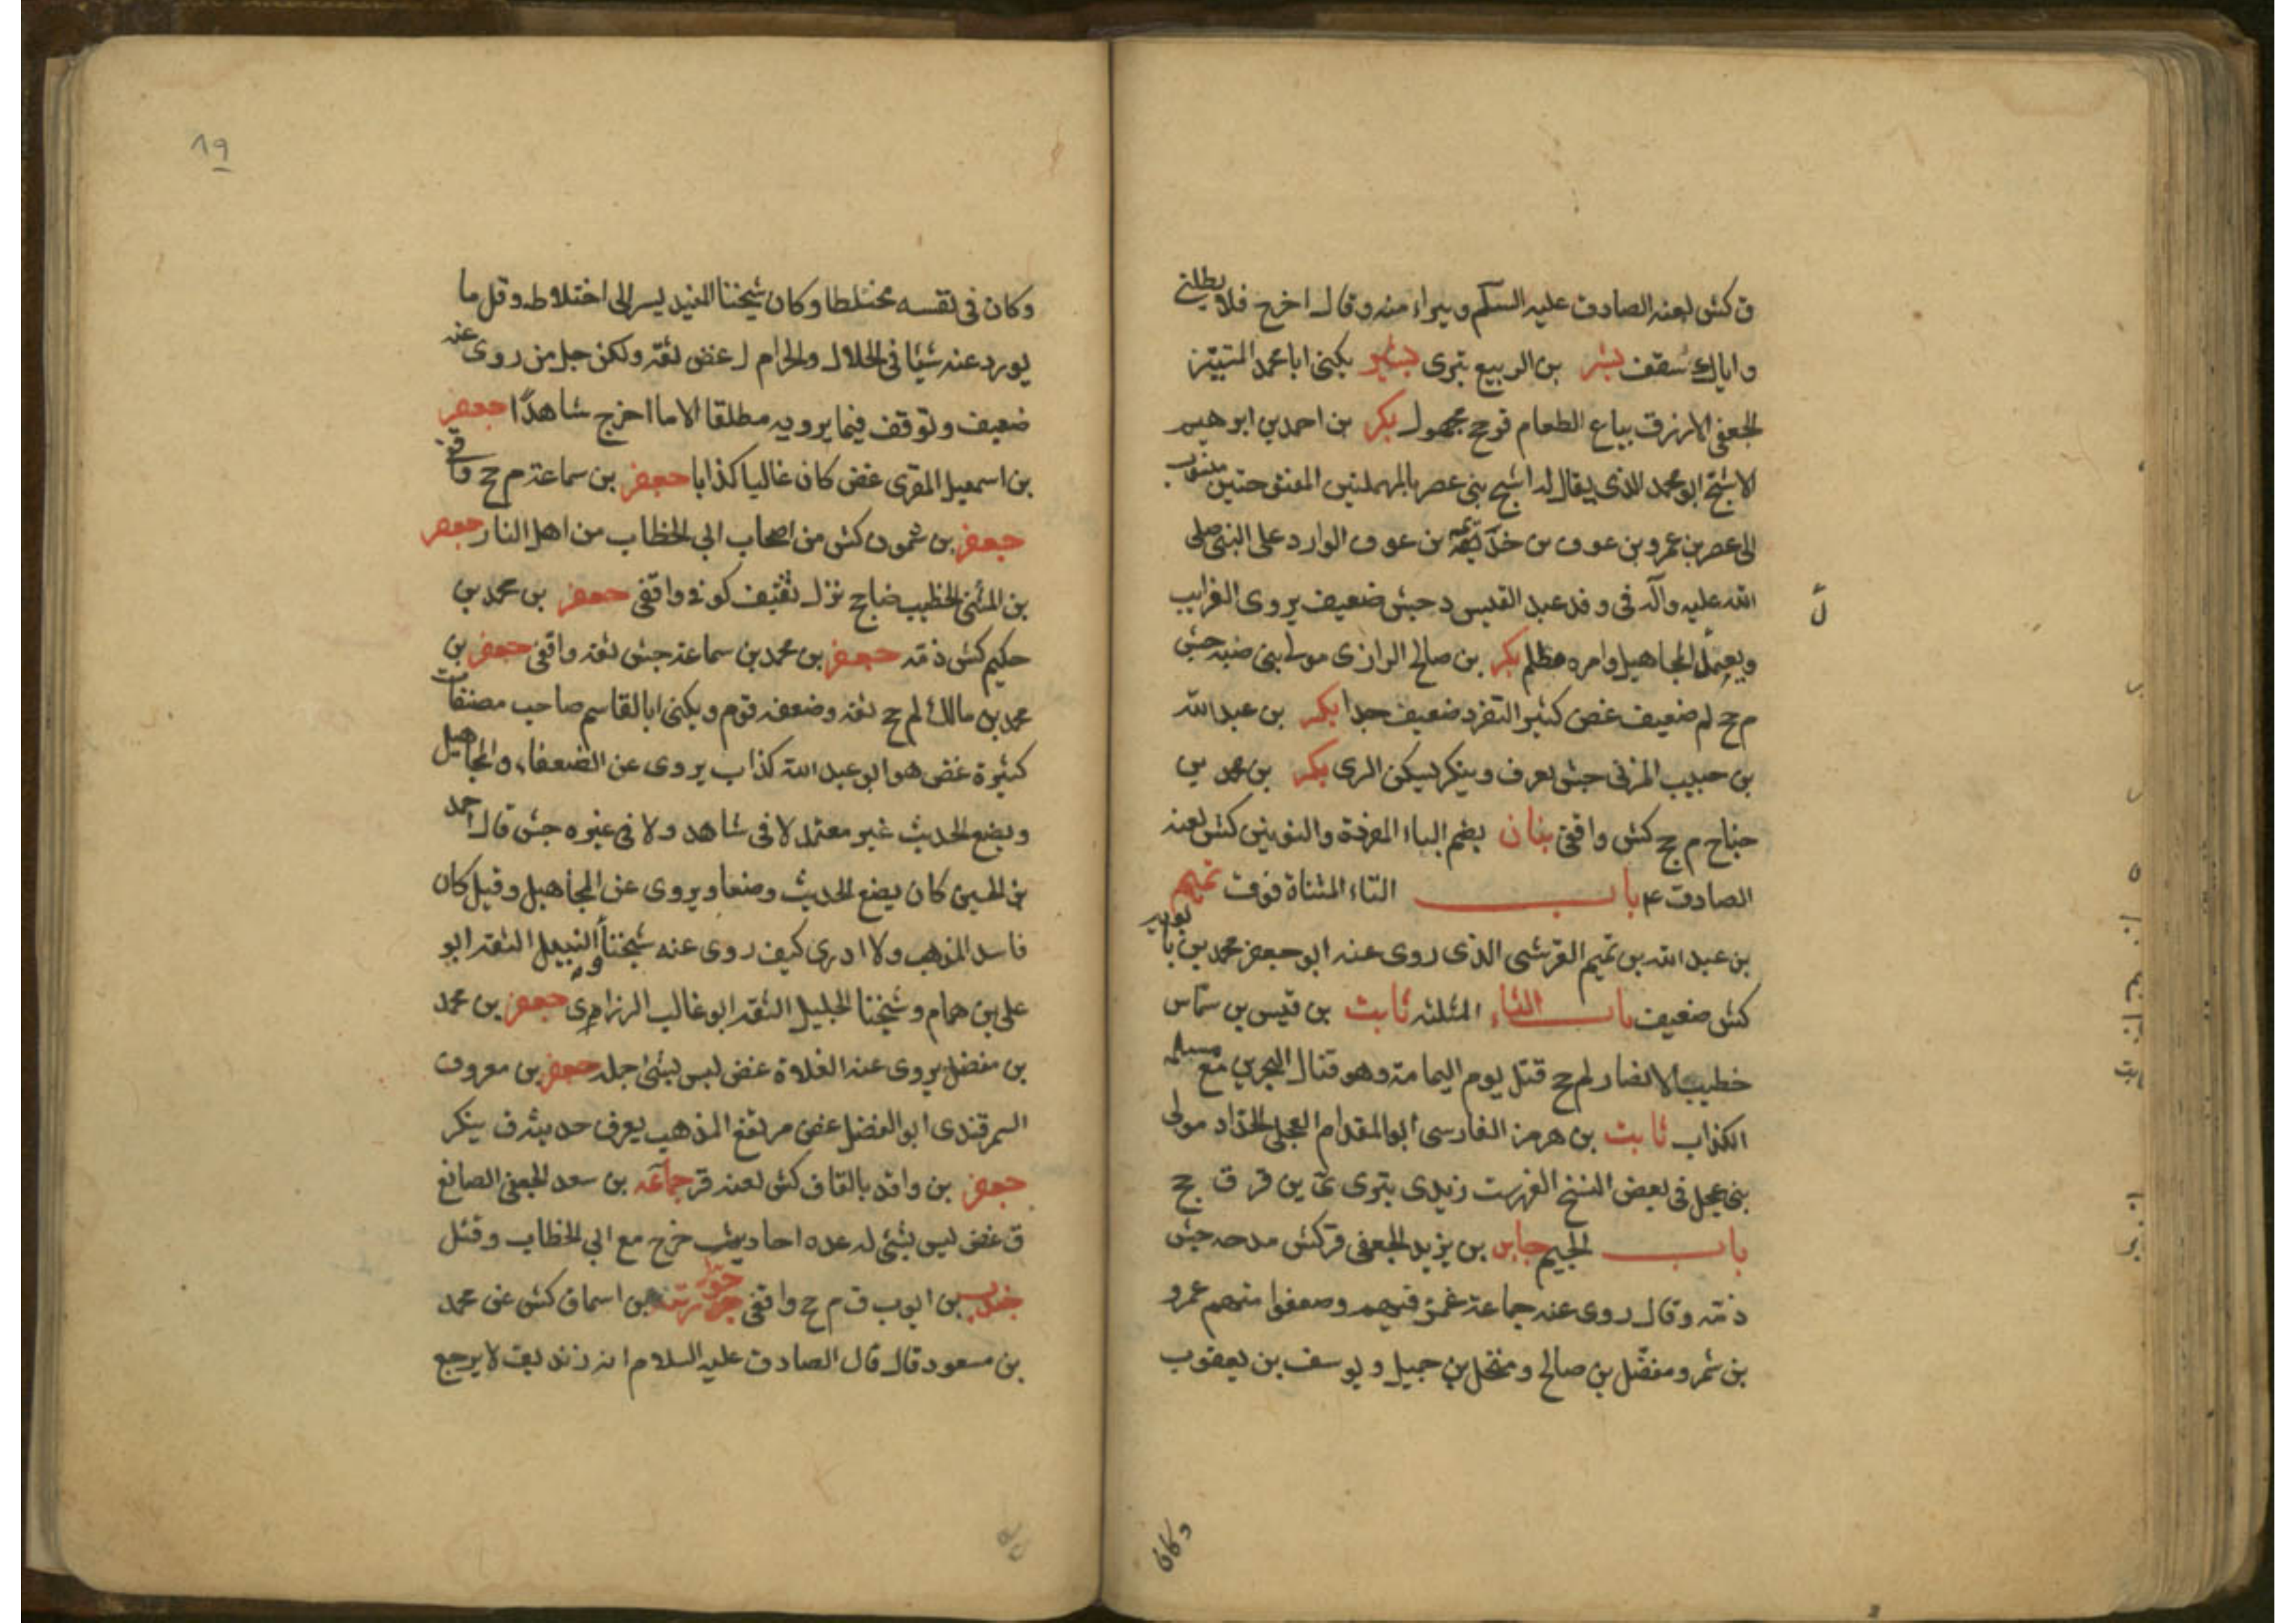 ق كش لعنه الصادق عليه السلم ويبراء منه وقال اخرج فلا يظلني
واياك سقف بشر بن الربيع بترى بشير يكنى ابا محمد المتبيز
الجعفى الازرق بياع الطعام قر جح مجهول بكر بن احمد بن ابرهيم
الاشج ابو محمد الذى يقال له اشج بنى عصر بالمهملتين المفتوحتين منسوب
الى عصر بن عمرو بن عوف بن خذيمة بن عوف الوارد على النبى صلى
الله عليه وآله فى وفد عبد القيس د جش ضعيف يروى الغرايب
ويعتمد المجاهيل وامره مظلم بكر بن صالح الرازى مولى بنى ضبه جش
م جح لم ضعيف غض كثير التفرد ضعيف جدا بكر بن عبد الله
بن حبيب المزنى جش يعرف وينكر يسكن الرى بكر بن محمد بن
جناح م جح كش واقفى بنان بضم الباء المفردة والنونين كش لعنه
الصادق ع باب التاء المثناة فوق تميم
بن عبد الله بن تميم القرشى الذى روى عنه ابو جعفر محمد بن بابويه
كش ضعيف باب الثاء المثلثه ثابت بن قيس بن شماس
خطيب الانصار لم جح قتل يوم اليمامة وهو قتال البحرين مع مسيلمه
الكذاب ثابت بن هرمز الفارسى ابو المقدام العجلى الحداد مولى
بنى عجل فى بعض النسخ الفهرست زيدى بترى ى ين قر ق جح
باب الجيم جابر بن يزيد الجعفى قر كش مدحه جش
ذمه وقال روى عنه جماعة غمز فيهم وضعفوا منهم عمرو
بن شمر ومفضل بن صالح ومنخل بن جميل ويوسف بن يعقوب
وكان
١٩
وكان فى نفسه مختلطا وكان شيخنا المفيد يسر الى اختلاطه وقل ما
يورد عنه شيئا فى الحلال والحرام ل غض ثقه ولكن جل من روى عنه
ضعيف وتوقف فيما يرويه مطلقا الا ما اخرج شاهدًا جعفر
بن اسمعيل المقرى غض كان غاليا كذابا جعفر بن سماعة م جح واقفى
جعفر بن شمون كش من اصحاب ابى الخطاب من اهل النار جعفر
بن المثنى الخطيب ضا جح نزل ثقيف كوفى واقفى جعفر بن محمد بن
حكيم كش ذمه جعفر بن محمد بن سماعة جش ثقه واقفى جعفر بن
محمد بن مالك لم جح ثقه وضعفه قوم ويكنى ابا القاسم صاحب مصنفات
كثيرة غض هو ابو عبد الله كذاب يروى عن الضعفاء والمجاهيل
ويضع الحديث غير معتمد لا فى شاهد ولا فى غيره جش قال احمد
بن الحسين كان يضع الحديث وضعا ويروى عن المجاهيل وقيل كان
فاسد المذهب ولا ادرى كيف روى عنه شيخنا النبيل الثقه ابو
على بن همام وشيخنا الجليل الثقه ابو غالب الرزارى جعفر بن محمد
بن مفضل يروى عنه الغلاة غض ليس بشئ جله جعفر بن معروف
السمرقندى ابو الفضل غض مرتفع المذهب يعرف حديثه ف ينكر
جعفر بن واقد بالقاف كش لعنه قر جماعة بن سعد الجعفى الصانع
ق غض ليس بشئ له عده احاديث خرج مع ابى الخطاب وقتل
جندب بن ايوب ق م جح واقفى بن اسحاق كش عن محمد
بن مسعود قال قال الصادق عليه السلام انه زنديق لا يرجع